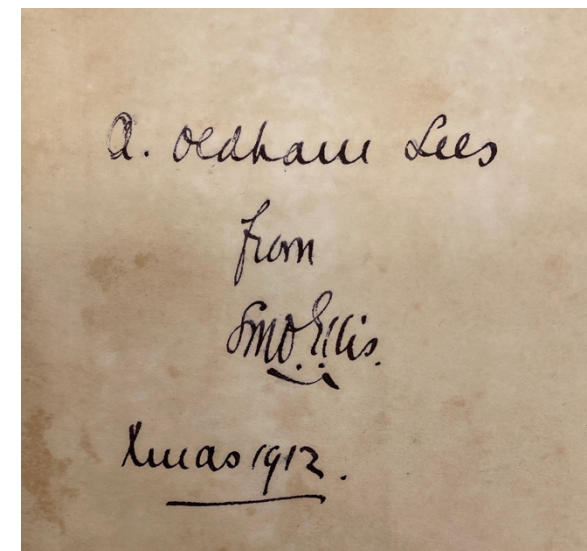 A. Oldham Lees
from
SMO.Ellis.
Xmas 1912.